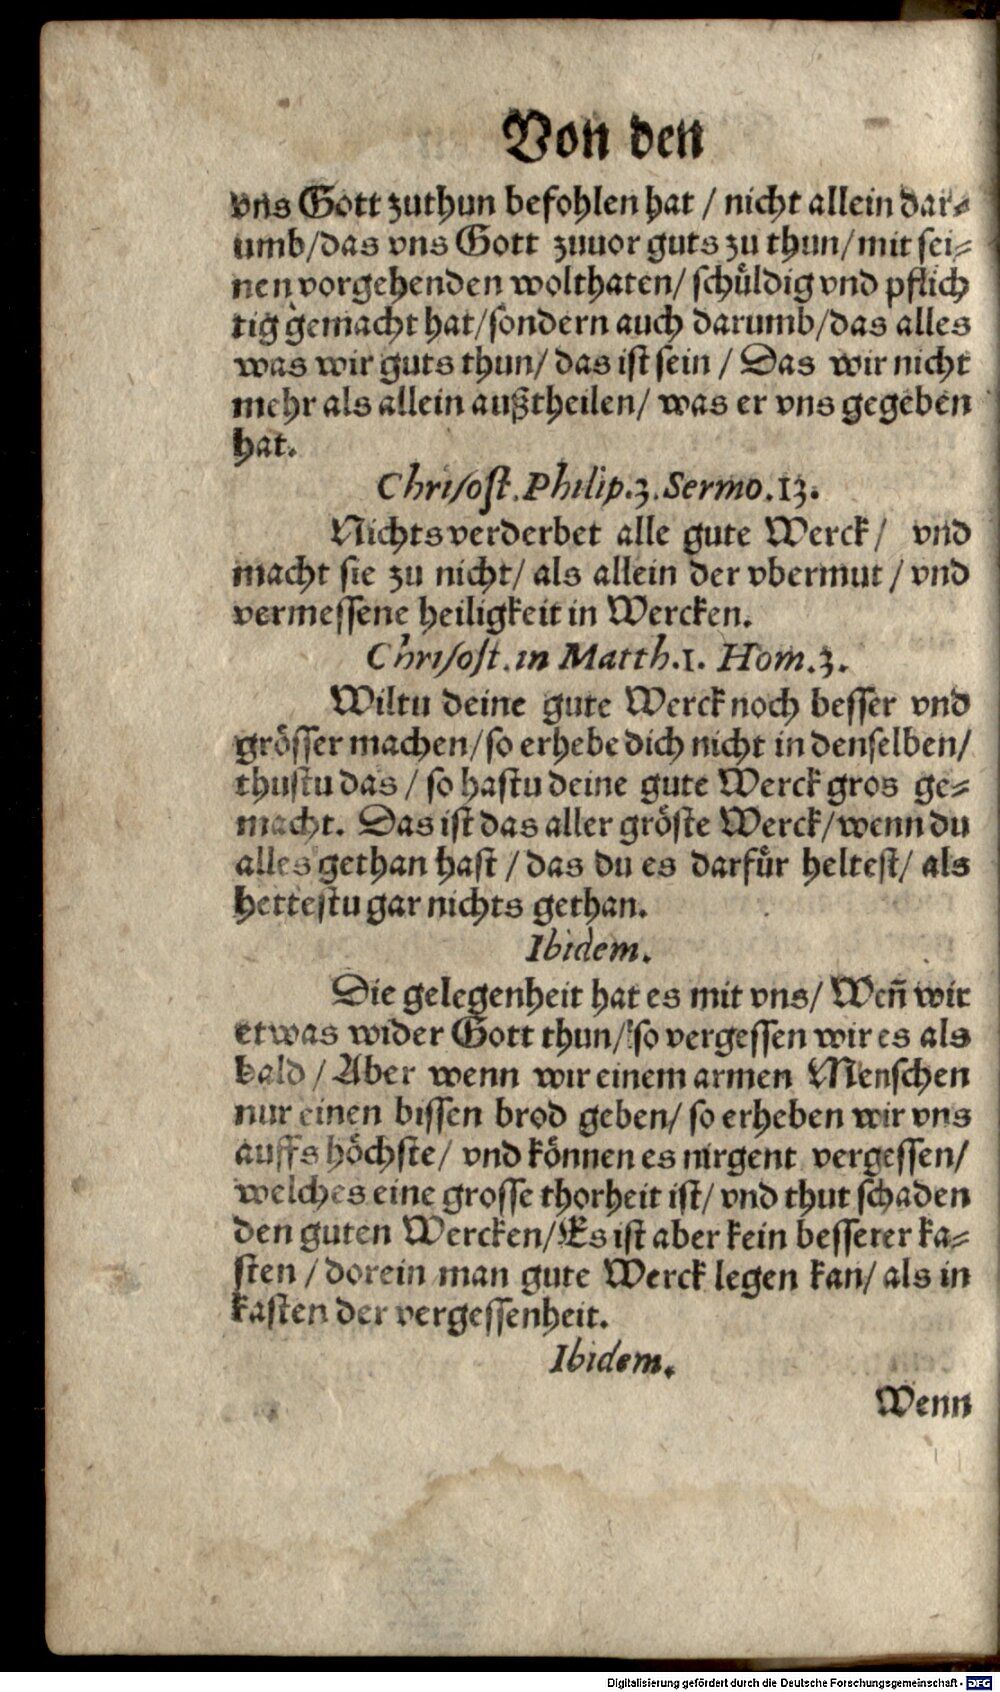 Von den
vns Gott zuthun befohlen hat / nicht allein dar⸗
umb/das vns Gott zuuor guts zu thun/ mit sei⸗
nen vorgehenden wolthaten/ schüldig vnd pflich
tig gemacht hat/sondern auch darumb/das alles
was wir guts thun/ das ist sein / Das wir nicht
mehr als allein außtheilen/ was er vns gegeben
hat.
Chrisost. Philip.3. Sermo.13.
Nichts verderbet alle gute Werck/ vnd
macht sie zu nicht/ als allein der vbermut / vnd
vermessene heiligkeit in Wercken.
Chrisost. in Matth.1. Hom.3.
Wiltu deine gute Werck noch besser vnd
grösser machen/so erhebe dich nicht in denselben/
thustu das / so hastu deine gute Werck gros ge⸗
macht. Das ist das aller gröste Werck/wenn du
alles gethan hast / das du es darfür heltest/ als
hettestu gar nichts gethan.
Ibidem.
Die gelegenheit hat es mit vns/ Weñ wir
etwas wider Gott thun/ so vergessen wir es als
bald / Aber wenn wir einem armen Menschen
nur einen bissen brod geben/ so erheben wir vns
auffs höchste/ vnd können es nirgent vergessen/
welches eine grosse thorheit ist/ vnd thut schaden
den guten Wercken/Es ist aber kein besserer ka⸗
sten / dorein man gute Werck legen kan/ als in
kasten der vergessenheit.
Ibidem.
Wenn
Digitalisierung gefördert durch die Deutsche Forschungsgemeinschaft - DFG